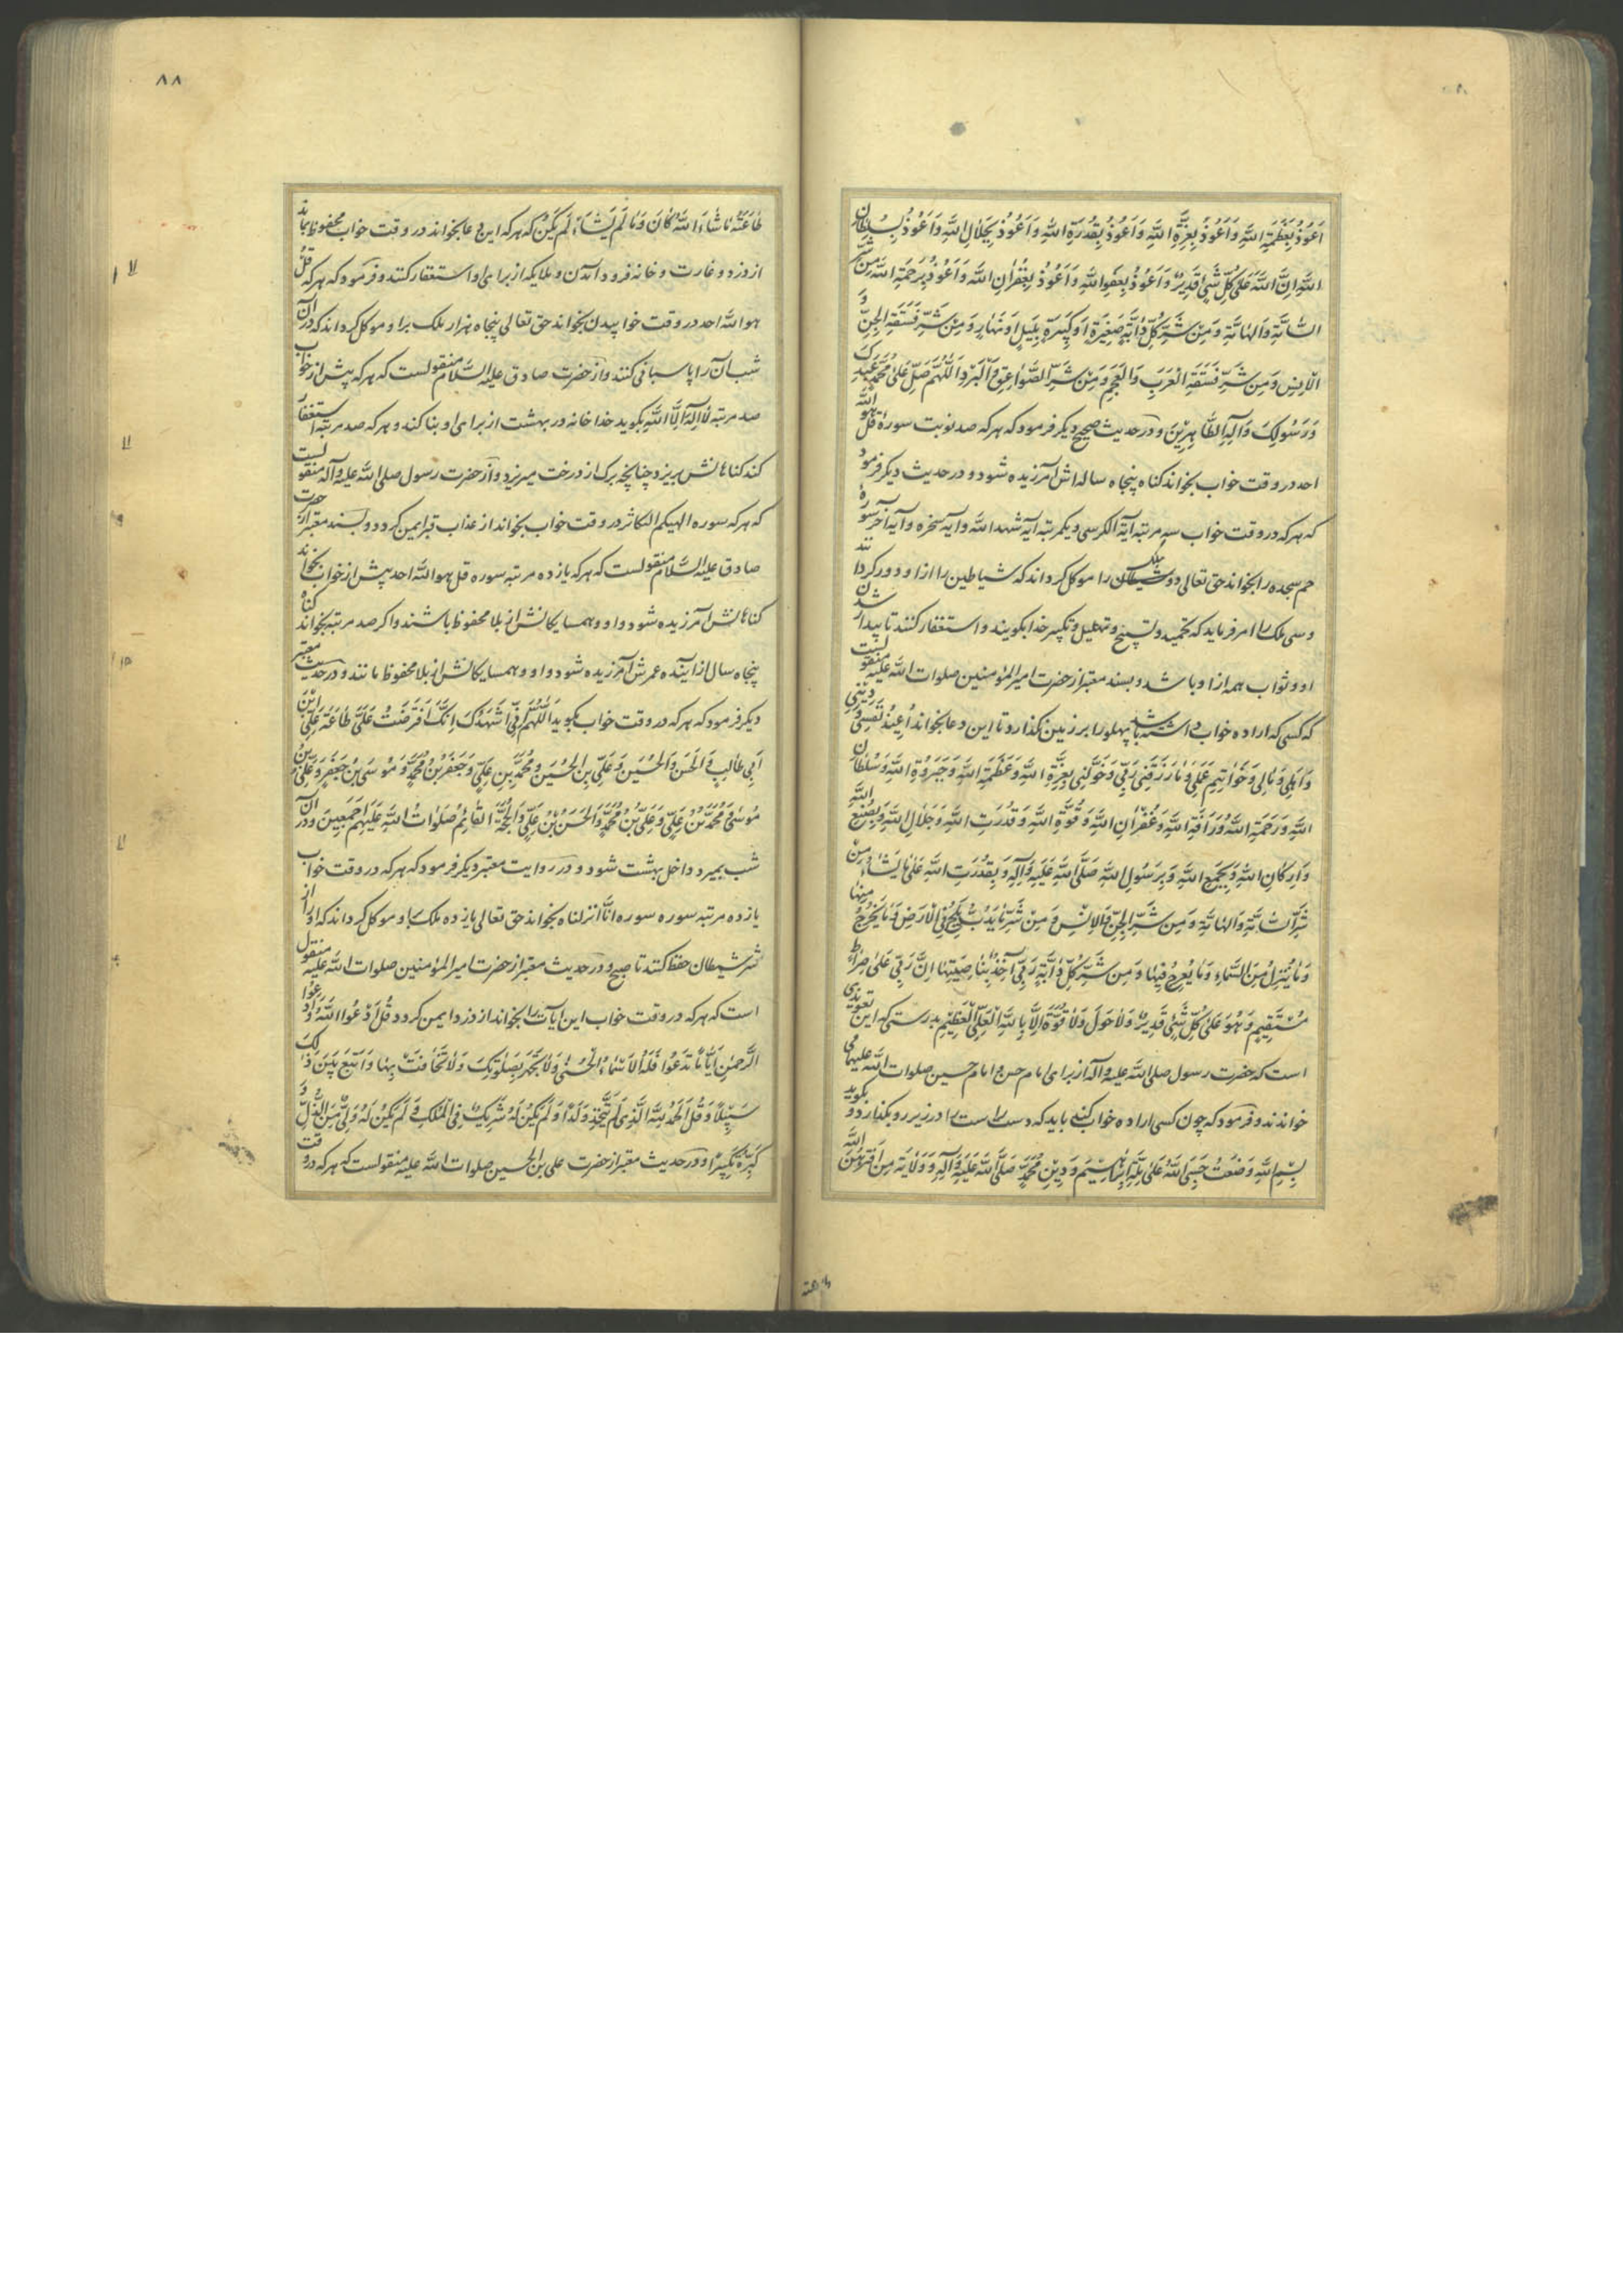 اَعُوذُ بِعَظَمَةِ اللَّهِ وَاَعُوذُ بِعِزَّةِ اللَّهِ وَاَعُوذُ بِقُدْرَةِ اللَّهِ وَاَعُوذُ بِجَلَالِ اللَّهِ وَاَعُوذُ بِسُلْطَانِ
اللَّهِ اِنَّ اللَّهَ عَلَى كُلِّ شَيْءٍ قَدِيرٌ وَاَعُوذُ بِعَفْوِ اللَّهِ وَاَعُوذُ بِغُفْرَانِ اللَّهِ وَاَعُوذُ بِرَحْمَةِ اللَّهِ مِنْ شَرِّ
السَّامَّةِ وَالْهَامَّةِ وَمِنْ شَرِّ كُلِّ دَابَّةٍ صَغِيرَةٍ اَوْ كَبِيرَةٍ بِلَيْلٍ اَوْ نَهَارٍ وَمِنْ شَرِّ فَسَقَةِ الْجِنِّ وَ
الْاِنْسِ وَمِنْ شَرِّ فَسَقَةِ الْعَرَبِ وَالْعَجَمِ وَمِنْ شَرِّ الصَّوَاعِقِ وَالْبَرْدِ اَللَّهُمَّ صَلِّ عَلَى مُحَمَّدٍ عَبْدِكَ
وَرَسُولِكَ وَآلِهِ الطَّاهِرِينَ و در حدیث صحیح دیگر فرمود که هر که صد نوبت سوره قل هو الله
احد در وقت خواب بخواند کناه پنجاه ساله اش آمرزیده شود و در حدیث دیگر فرمود
که هر که در وقت خواب سه مرتبه آیة الکرسی و یکمرتبه آیه شهد الله و آیه سخره و آیه آخر سوره
حم سجده را بخواند حق تعالی دو ملک شیطان را موکل گرداند که شیاطین را از او دور کردانند
و سی ملک را امر فرماید که تحمید و تسبیح و تهلیل و تکبیر خدا بکویند و استغفار کنند تا بیدار شدن
او و ثواب همه از او باشد و بسند معتبر از حضرت امیر المؤمنین صلوات الله علیه منقولست
که کسی که اراده خواب داشته باشد پهلو را بر زمین نکذارد تا این دعا بخواند اُعِيذُ نَفْسِي وَدِينِي
وَاَهْلِي وَمَالِي وَخَوَاتِيمَ عَمَلِي وَمَا رَزَقَنِي رَبِّي وَخَوَّلَنِي بِعِزَّةِ اللَّهِ وَعَظَمَةِ اللَّهِ وَجَبَرُوتِ اللَّهِ وَسُلْطَانِ
اللَّهِ وَرَحْمَةِ اللَّهِ وَرَأْفَةِ اللَّهِ وَغُفْرَانِ اللَّهِ وَقُوَّةِ اللَّهِ وَقُدْرَتِ اللَّهِ وَجَلَالِ اللَّهِ وَبِصُنْعِ اللَّهِ
وَاَرْكَانِ اللَّهِ وَبِجَمْعِ اللَّهِ وَبِرَسُولِ اللَّهِ صَلَّى اللَّهُ عَلَيْهِ وَآلِهِ وَبِقُدْرَتِ اللَّهِ عَلَى مَا يَشَاءُ مِنْ
شَرِّ السَّامَّةِ وَالْهَامَّةِ وَمِنْ شَرِّ الْجِنِّ وَالْاِنْسِ وَمِنْ شَرِّ مَا يَدُبُّ فِي الْاَرْضِ وَمَا يَخْرُجُ مِنْهَا
وَمَا يَنْزِلُ مِنَ السَّمَاءِ وَمَا يَعْرُجُ فِيهَا وَمِنْ شَرِّ كُلِّ دَابَّةٍ رَبِّي آخِذٌ بِنَاصِيَتِهَا اِنَّ رَبِّي عَلَى صِرَاطٍ
مُسْتَقِيمٍ وَهُوَ عَلَى كُلِّ شَيْءٍ قَدِيرٌ وَلَا حَوْلَ وَلَا قُوَّةَ اِلَّا بِاللَّهِ الْعَلِيِّ الْعَظِيمِ بدرستی که این تعویذی
است که حضرت رسول صلی الله علیه و آله از برای امام حسن و امام حسین صلوات الله علیهما می
خواندند و فرمود که چون کسی اراده خواب کند باید که دست راست را در زیر رو بکذارد و بکوید
بِسْمِ اللَّهِ وَضَعْتُ جَنْبِي لِلَّهِ عَلَى مِلَّةِ اِبْرَاهِيمَ وَدِينِ مُحَمَّدٍ صَلَّى اللَّهُ عَلَيْهِ وَآلِهِ وَوَلَايَةِ مَنِ افْتَرَضَ اللَّهُ
طاعته
۸۸
طَاعَتَهُ مَا شَاءَ اللَّهُ كَانَ وَمَا لَمْ يَشَاءْ لَمْ يَكُنْ که هر که این دعا بخواند در وقت خواب محفوظ بماند
از دزد و غارت و خانه فرود آمدن و ملایکه از برای او استغفار کنند و فرمود که هر که قل
هو الله احد در وقت خوابیدن بخواند حق تعالی پنجاه هزار ملک برا و موکل گرداند که در آن
شب آن را پاسبانی کنند و از حضرت صادق علیه السلام منقولست که هر که پیش از خواب
صد مرتبه لا اله الا الله بکوید خدا خانه در بهشت از برای او بنا کند و هر که صد مرتبه استغفار
کند کناهانش بریزد چنانچه برک از درخت میریزد و از حضرت رسول صلی الله علیه و آله منقولست
که هر که سوره الهیکم التکاثر در وقت خواب بخواند از عذاب قبر ایمن کردد و بسند معتبر از حضرت
صادق علیه السلام منقولست که هر که یازده مرتبه سوره قل هو الله احد پیش از خواب بخواند
کناهانش آمرزیده شود و او و همسایکانش از بلا محفوظ باشند و اکر صد مرتبه بخواند کناه
پنجاه سال از آینده عمرش آمرزیده شود و او و همسایکانش از بلا محفوظ مانند و در حدیث معتبر
دیکر فرمود که هر که در وقت خواب بکوید اَللَّهُمَّ اِنِّي اُشْهِدُكَ اَنَّكَ افْتَرَضْتَ عَلَيَّ طَاعَةَ عَلِيِّ ابْنِ
اَبِي طَالِبٍ وَالْحَسَنِ وَالْحُسَيْنِ وَعَلِيِّ بْنِ الْحُسَيْنِ وَمُحَمَّدِ بْنِ عَلِيٍّ وَجَعْفَرِ بْنِ مُحَمَّدٍ وَمُوسَى بْنِ جَعْفَرٍ وَعَلِيِّ بْنِ
مُوسَى وَمُحَمَّدِ بْنِ عَلِيٍّ وَعَلِيِّ بْنِ مُحَمَّدٍ وَالْحَسَنِ بْنِ عَلِيٍّ وَالْحُجَّةِ الْقَائِمِ صَلَوَاتُ اللَّهِ عَلَيْهِمْ اَجْمَعِينَ و در آن
شب بمیرد داخل بهشت شود و در روایت معتبر دیکر فرمود که هر که در وقت خواب
یازده مرتبه سوره سوره انا انزلناه بخواند حق تعالی یازده ملک باو موکل گرداند که او را از
شر شیطان حفظ کنند تا صبح و در حدیث معتبر از حضرت امیر المؤمنین صلوات الله علیه منقول
است که هر که در وقت خواب این آیات را بخواند از دزد ایمن کردد قُلِ ادْعُوا اللَّهَ اَوِ ادْعُوا
الرَّحْمَنَ اَيًّا مَا تَدْعُوا فَلَهُ الْاَسْمَاءُ الْحُسْنَى وَلَا تَجْهَرْ بِصَلَوتِكَ وَلَا تُخَافِتْ بِهَا وَابْتَغِ بَيْنَ ذَلِكَ
سَبِيلًا وَقُلِ الْحَمْدُ لِلَّهِ الَّذِي لَمْ يَتَّخِذْ وَلَدًا وَلَمْ يَكُنْ لَهُ شَرِيكٌ فِي الْمُلْكِ وَلَمْ يَكُنْ لَهُ وَلِيٌّ مِنَ الذُّلِّ وَ
كَبِّرْهُ تَكْبِيرًا و در حدیث معتبر از حضرت علی بن الحسین صلوات الله علیه منقولست که هر که در وقت